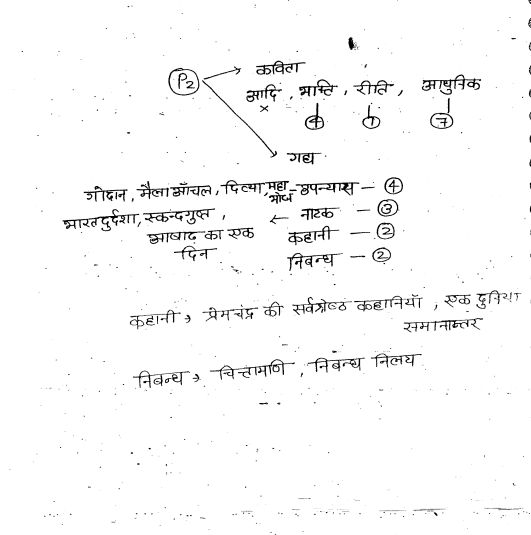 P2 → कविता
आदि, भक्ति, रीति, आधुनिक
× ④ ① ⑦
→ गद्य
गोदान, मैला आँचल, दिव्या, महाभोज - उपन्यास - ④
भारत दुर्दशा, स्कन्दगुप्त, ← नाटक - ③
आषाढ़ का एक दिन
कहानी - ②
निबन्ध - ②
कहानी → प्रेमचंद की सर्वश्रेष्ठ कहानियाँ, एक दुनिया
समानान्तर
निबन्ध → चिन्तामणि, निबन्ध निलय